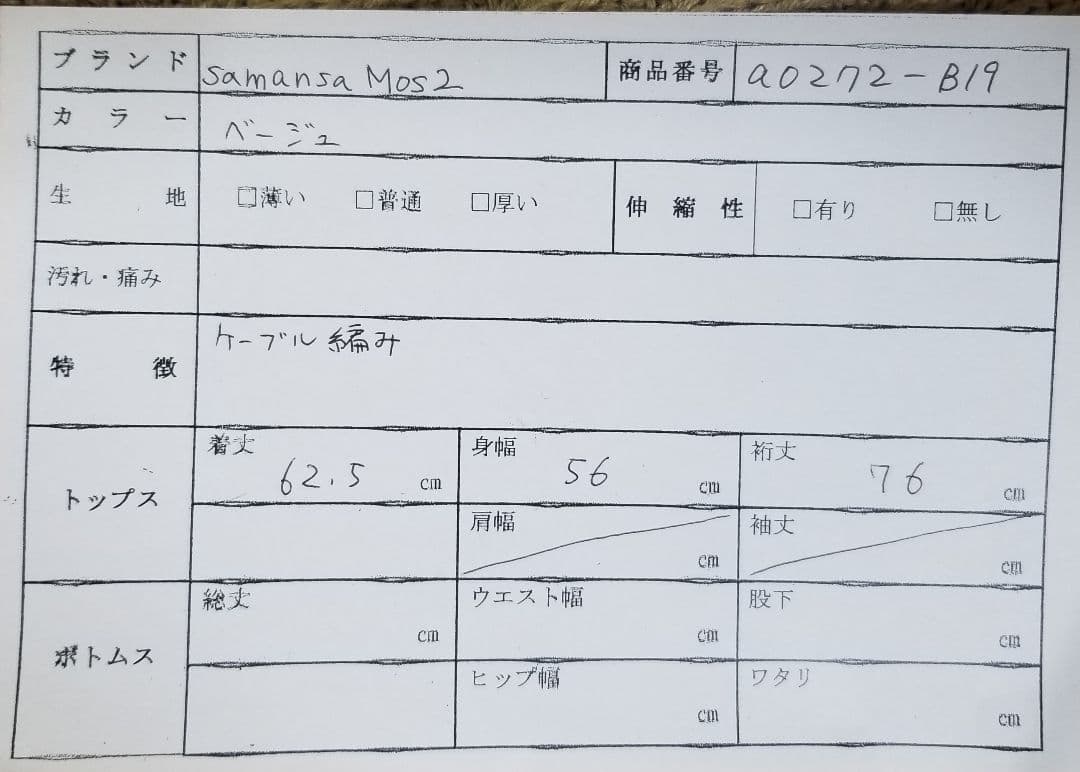 ブランド samansa Mos2 商品番号 a0272-B19
カラー ベージュ
生地 □薄い □普通 □厚い 伸縮性 □有り □無し
汚れ・痛み
特徴 ケーブル編み
トップス 着丈 62.5 cm 身幅 56 cm 裄丈 76 cm
肩幅 cm 袖丈 cm
ボトムス 総丈 cm ウエスト幅 cm 股下 cm
ヒップ幅 cm ワタリ cm